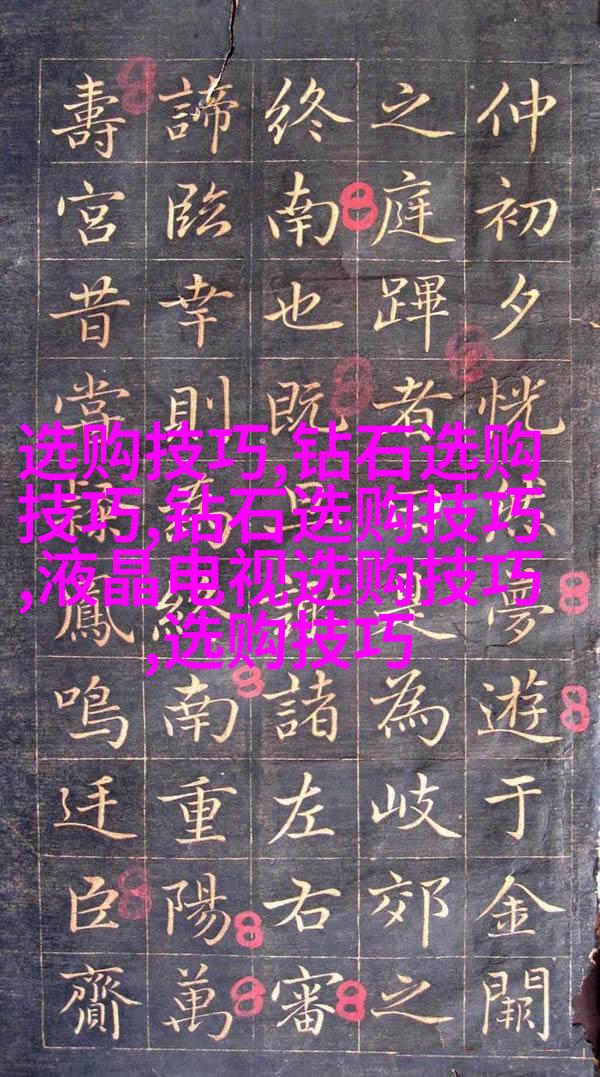 仲初夕恍夢遊于金闕
之庭蹕者是為岐郊之
終南也既諸左右審
諦臨幸則終南重陽萬
壽宮昔鳳鳴廷臣齎
选购技巧,钻石选购
技巧,钻石选购技巧
,液晶电视选购技巧
,选购技巧
8
8
8
8
8
8
8
8
8
8